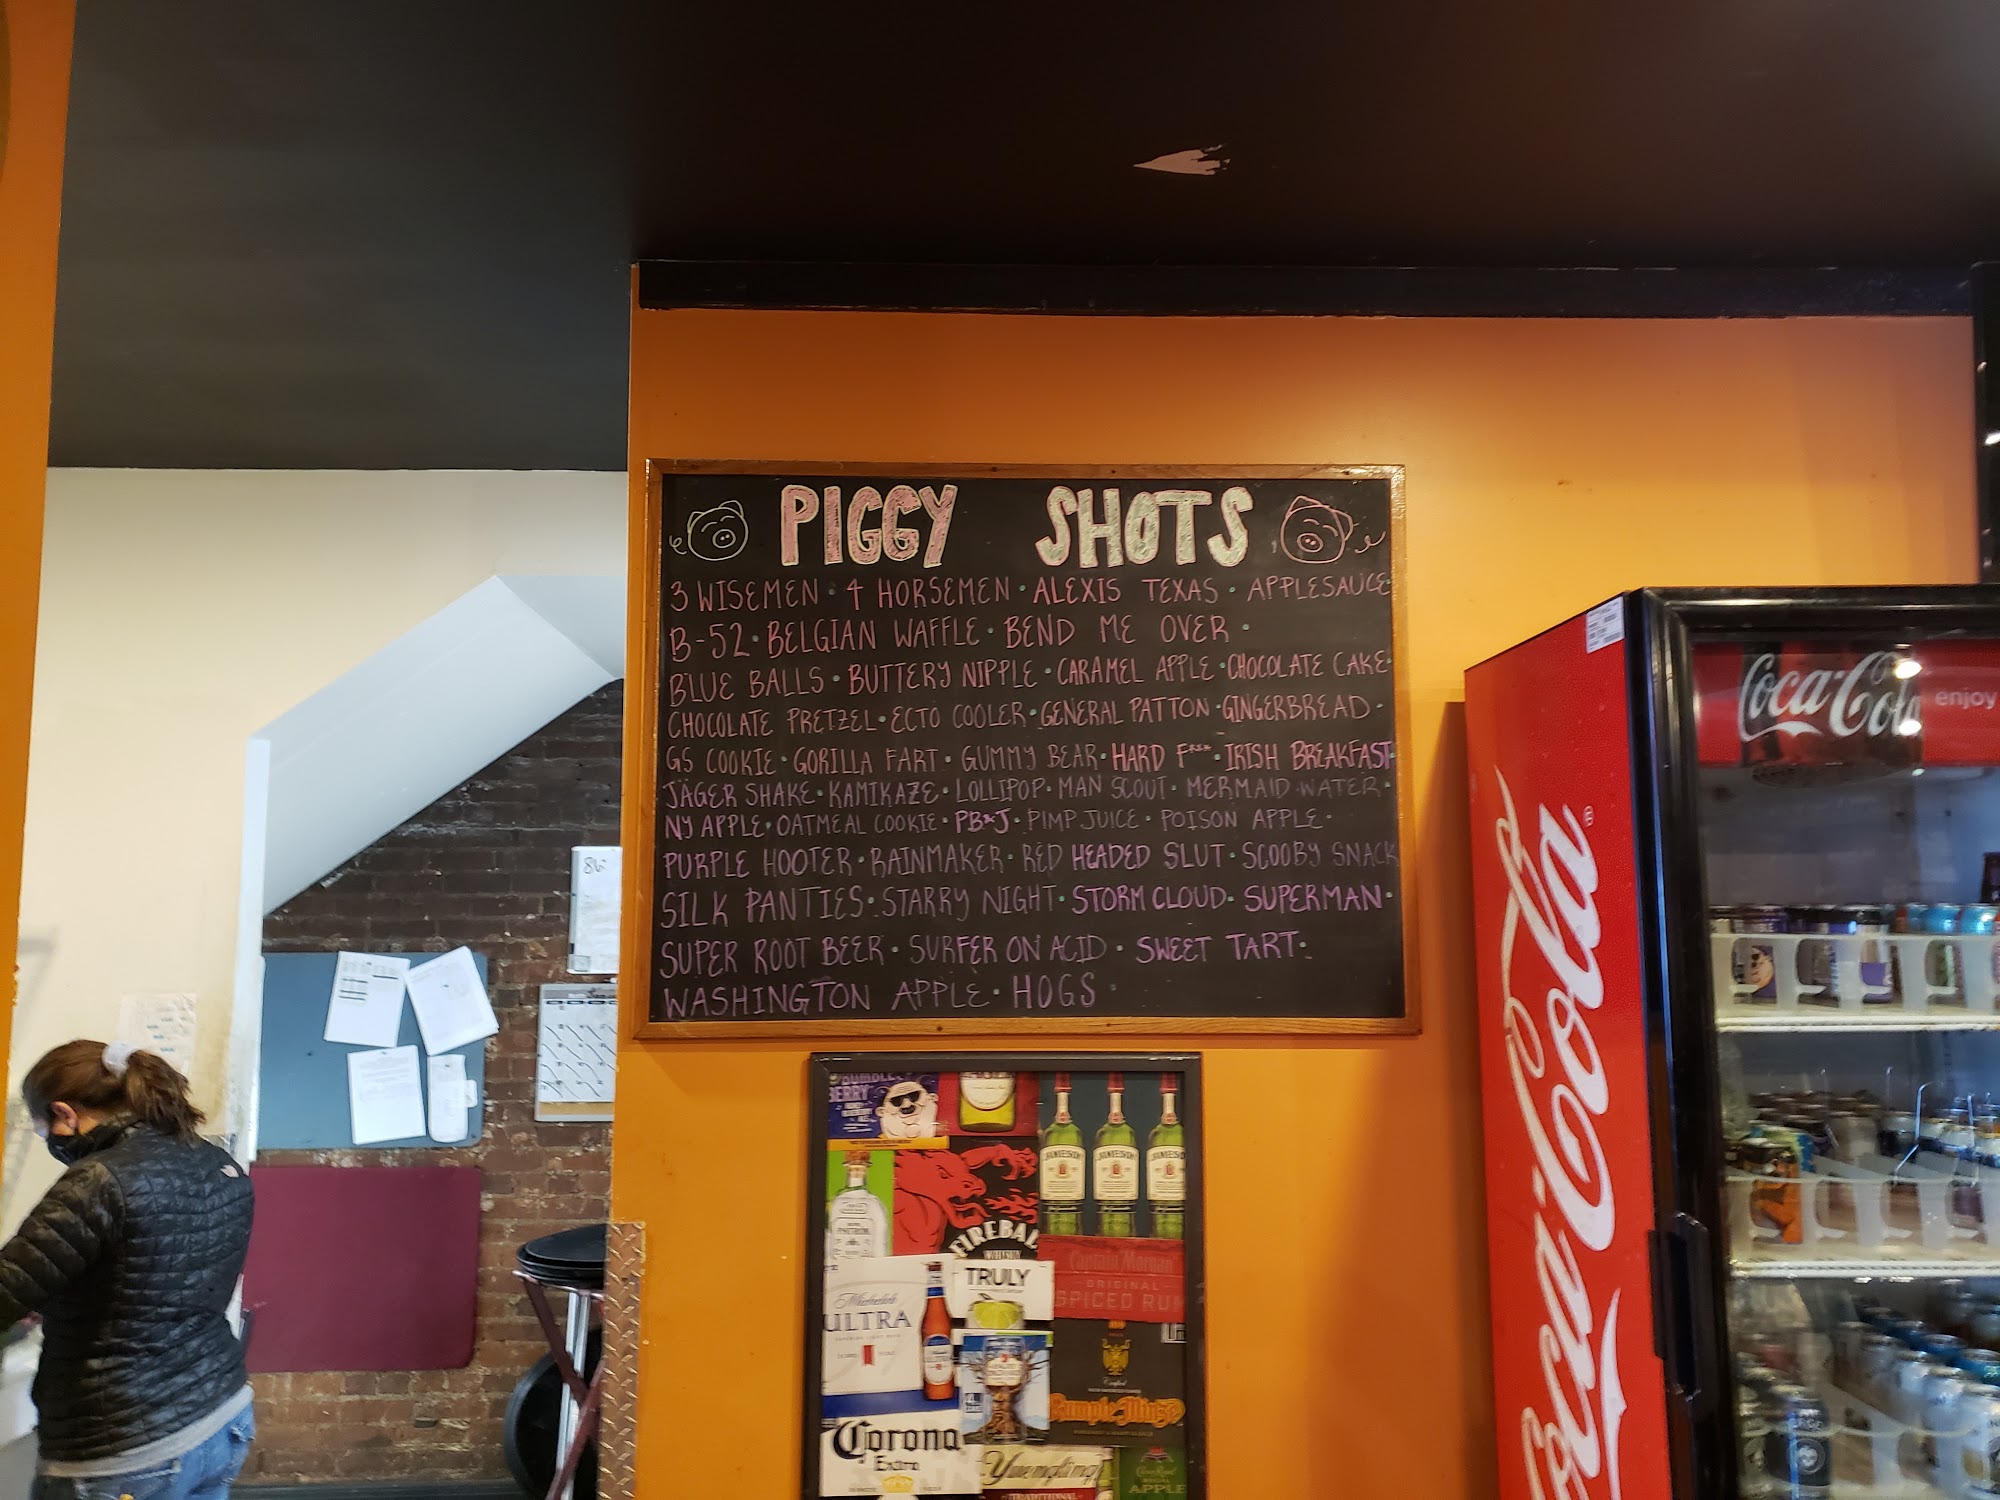 PIGGY SHOTS
3 WISEMEN · 4 HORSEMEN · ALEXIS TEXAS · APPLESAUCE
B-52 · BELGIAN WAFFLE · BEND ME OVER ·
BLUE BALLS · BUTTERY NIPPLE · CARAMEL APPLE · CHOCOLATE CAKE
CHOCOLATE PRETZEL · ECTO COOLER · GENERAL PATTON · GINGERBREAD ·
GS COOKIE · GORILLA FART · GUMMY BEAR · HARD F*** · IRISH BREAKFAST
JÄGER SHAKE · KAMIKAZE · LOLLIPOP · MAN SCOUT · MERMAID WATER ·
NY APPLE · OATMEAL COOKIE · PB*J · PIMP JUICE · POISON APPLE ·
PURPLE HOOTER · RAINMAKER · RED HEADED SLUT · SCOOBY SNACK
SILK PANTIES · STARRY NIGHT · STORM CLOUD · SUPERMAN ·
SUPER ROOT BEER · SURFER ON ACID · SWEET TART ·
WASHINGTON APPLE · HOGS
86
Coca-Cola
enjoy
Coca-Cola
BUMBLE
BERRY
JAMESON
JAMESON
JAMESON
PATRÓN
FIREBALL
WHISKY
TRULY
Captain Morgan
ORIGINAL
SPICED RUM
Michelob
ULTRA
Rumple Minze
Corona
Extra
Yuengling
TRADITIONAL
APPLE